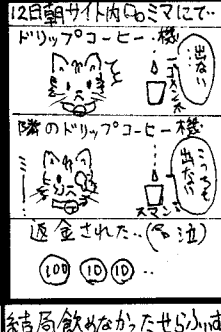 12日朝サイト内ロミマにて‥
ドリップコーヒー機
出ない…
ゴメン系
隣のドリップコーヒー機
こっちも出ない?
スマン系
返金された‥(泣)
100 10 10 ‥
結局飲めなかったせらふぃ